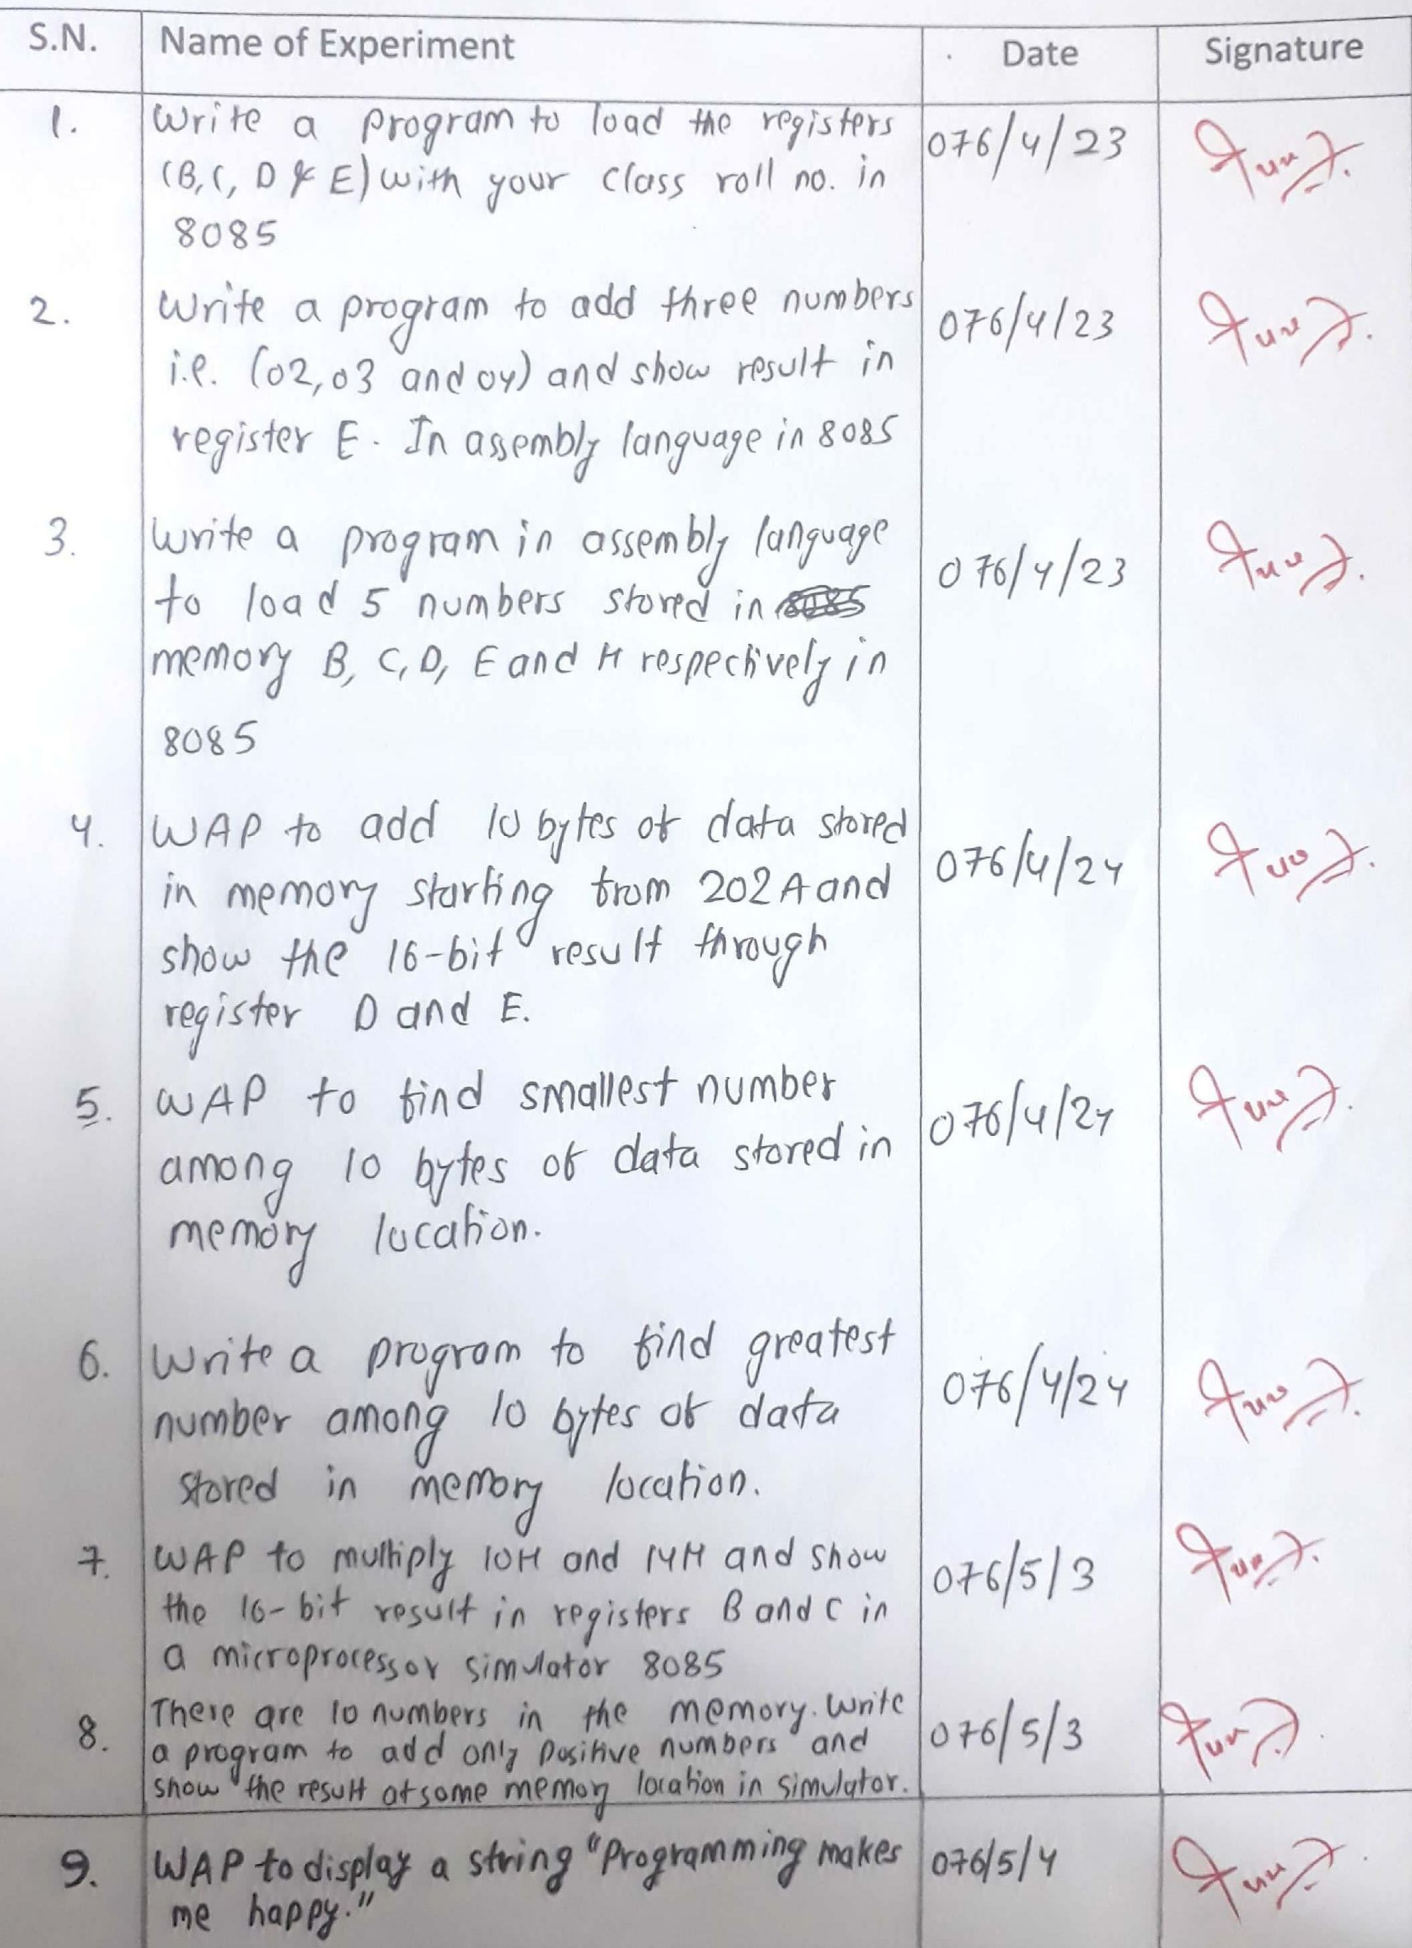 S.N. Name of Experiment Date Signature
1. Write a program to load the registers 076/4/23
(B, C, D & E) with your class roll no. in
8085
2. Write a program to add three numbers 076/4/23
i.e. (02,03 and 04) and show result in
register E. In assembly language in 8085
3. Write a program in assembly language 076/4/23
to load 5 numbers stored in
memory B, C, D, E and H respectively in
8085
4. WAP to add 10 bytes of data stored 076/4/24
in memory starting from 202A and
show the 16-bit result through
register D and E.
5. WAP to find smallest number 076/4/24
among 10 bytes of data stored in
memory location.
6. Write a program to find greatest 076/4/24
number among 10 bytes of data
stored in memory location.
7. WAP to multiply 10H and 14H and show 076/5/3
the 16-bit result in registers B and C in
a microprocessor simulator 8085
8. There are 10 numbers in the memory. Write 076/5/3
a program to add only positive numbers and
show the result at some memory location in simulator.
9. WAP to display a string "Programming makes 076/5/4
me happy."